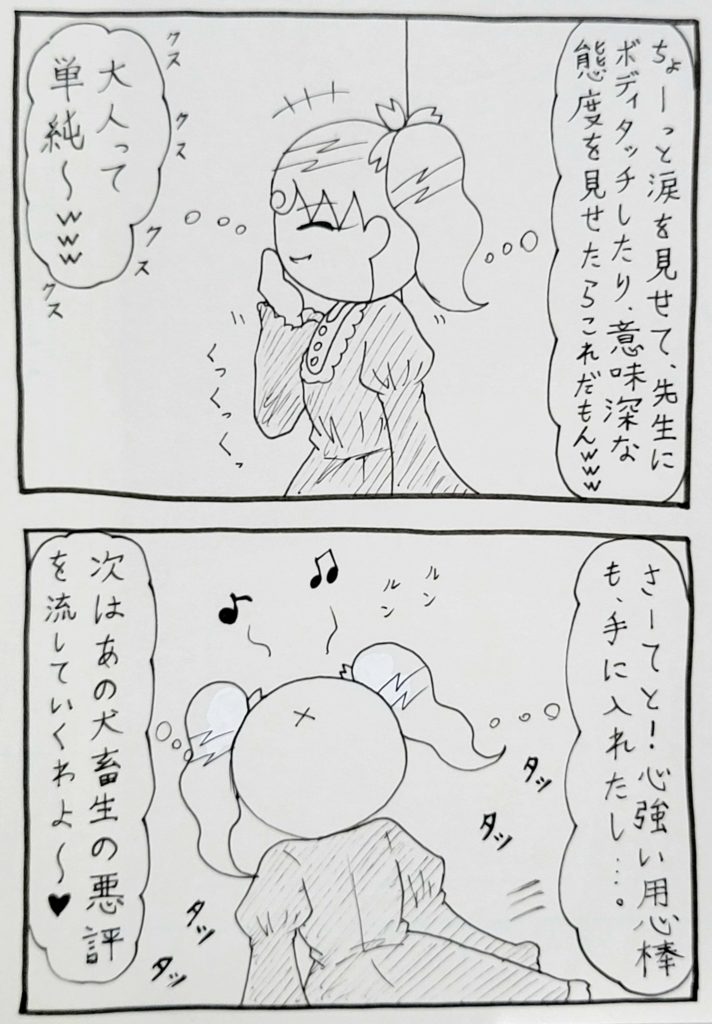 ちょーっと涙を見せて、先生に
ボディタッチしたり、意味深な
態度を見せたらこれだもんwww
大人って
単純〜www
クス
クス
クス
クス
くっくっくっ
さーてと!心強い用心棒
も、手に入れたし…。
ルン
ルン
次はあの犬畜生の悪評
を流していくわよ〜♥
タッ
タッ
タッ
タッ